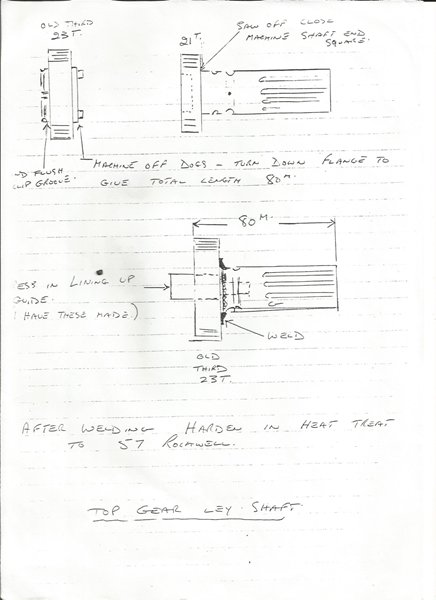 OLD THIRD
23T.
21T.
SAW OFF CLOSE
MACHINE SHAFT END
SQUARE.
ND FLUSH
LIP GROOVE.
MACHINE OFF DOGS - TURN DOWN FLANGE TO
GIVE TOTAL LENGTH 80M.
80M.
ESS IN LINING UP
GUIDE.
I HAVE THESE MADE.)
WELD
OLD
THIRD
23T.
AFTER WELDING HARDEN IN HEAT TREAT
TO 57 ROCKWELL.
TOP GEAR LEY SHAFT.